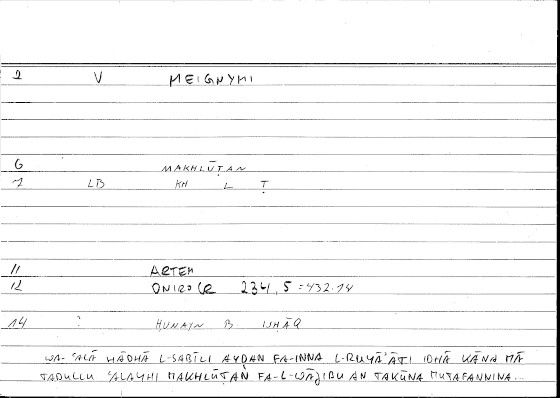 2 V MEIGNYMI
6 MAKHLŪṬAN
7 LB KH L Ṭ
11 ARTEM
12 ONIROCR 234,5 = 432.14
14 : ḤUNAYN B ISḤĀQ
WA-ʿALĀ HĀDHĀ L-SABĪLI AYḌAN FA-INNA L-RUYĀʾĀTI IDHĀ KĀNA MĀ
TADULLU ʿALAYHI MAKHLŪṬAN FA-L-WĀǧIBU AN TAKŪNA MUTAFANNINA...